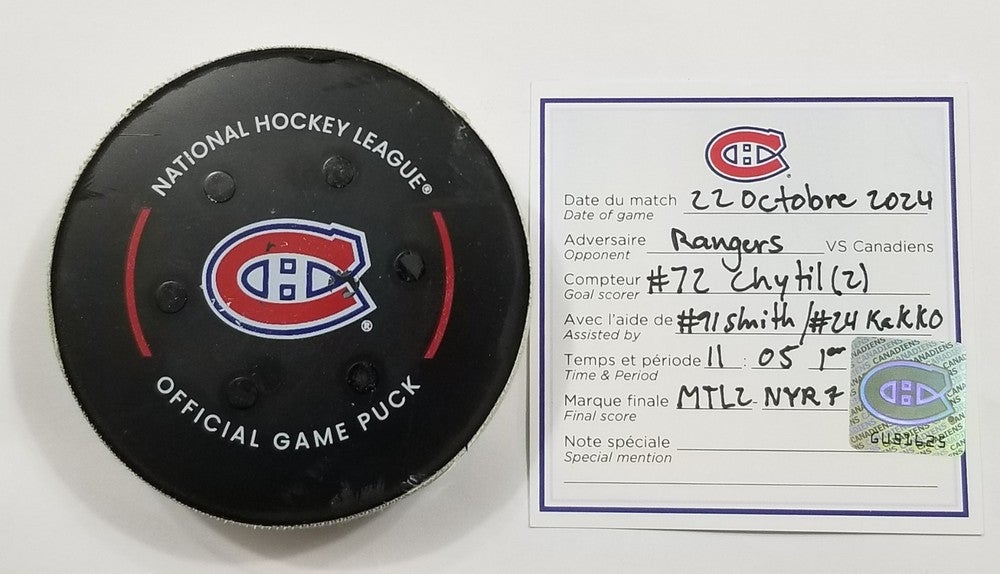 NATIONAL HOCKEY LEAGUE®
®
OFFICIAL GAME PUCK
®
Date du match 22 Octobre 2024
Date of game
Adversaire Rangers VS Canadiens
Opponent
Compteur #72 Chytil (2)
Goal scorer
Avec l'aide de #91 Smith / #24 Kakko
Assisted by
Temps et période 11 : 05 1er
Time & Period
Marque finale MTL2 - NYR 7
Final score
GU91625
Note spéciale
Special mention